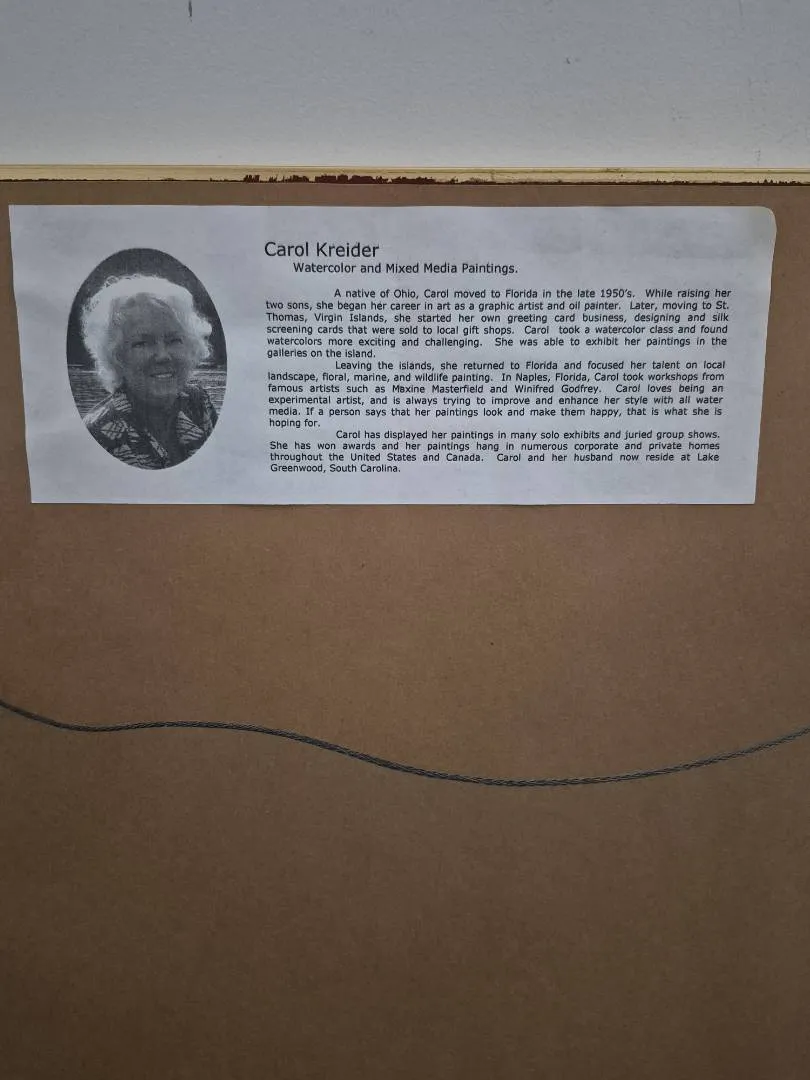 Carol Kreider
Watercolor and Mixed Media Paintings.
A native of Ohio, Carol moved to Florida in the late 1950's. While raising her
two sons, she began her career in art as a graphic artist and oil painter. Later, moving to St.
Thomas, Virgin Islands, she started her own greeting card business, designing and silk
screening cards that were sold to local gift shops. Carol took a watercolor class and found
watercolors more exciting and challenging. She was able to exhibit her paintings in the
galleries on the island.
Leaving the islands, she returned to Florida and focused her talent on local
landscape, floral, marine, and wildlife painting. In Naples, Florida, Carol took workshops from
famous artists such as Maxine Masterfield and Winifred Godfrey. Carol loves being an
experimental artist, and is always trying to improve and enhance her style with all water
media. If a person says that her paintings look and make them happy, that is what she is
hoping for.
Carol has displayed her paintings in many solo exhibits and juried group shows.
She has won awards and her paintings hang in numerous corporate and private homes
throughout the United States and Canada. Carol and her husband now reside at Lake
Greenwood, South Carolina.